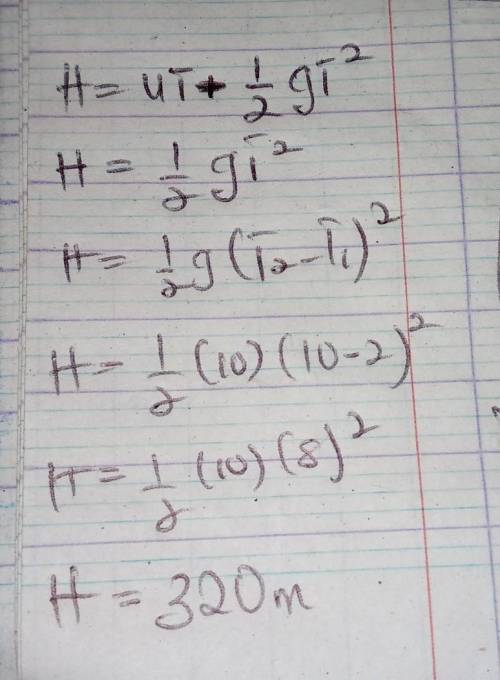 H = uT + 1/2 gT²
H = 1/2 gT²
H = 1/2 g(T₂ - T₁)²
H = 1/2 (10) (10-2)²
H = 1/2 (10) (8)²
H = 320m